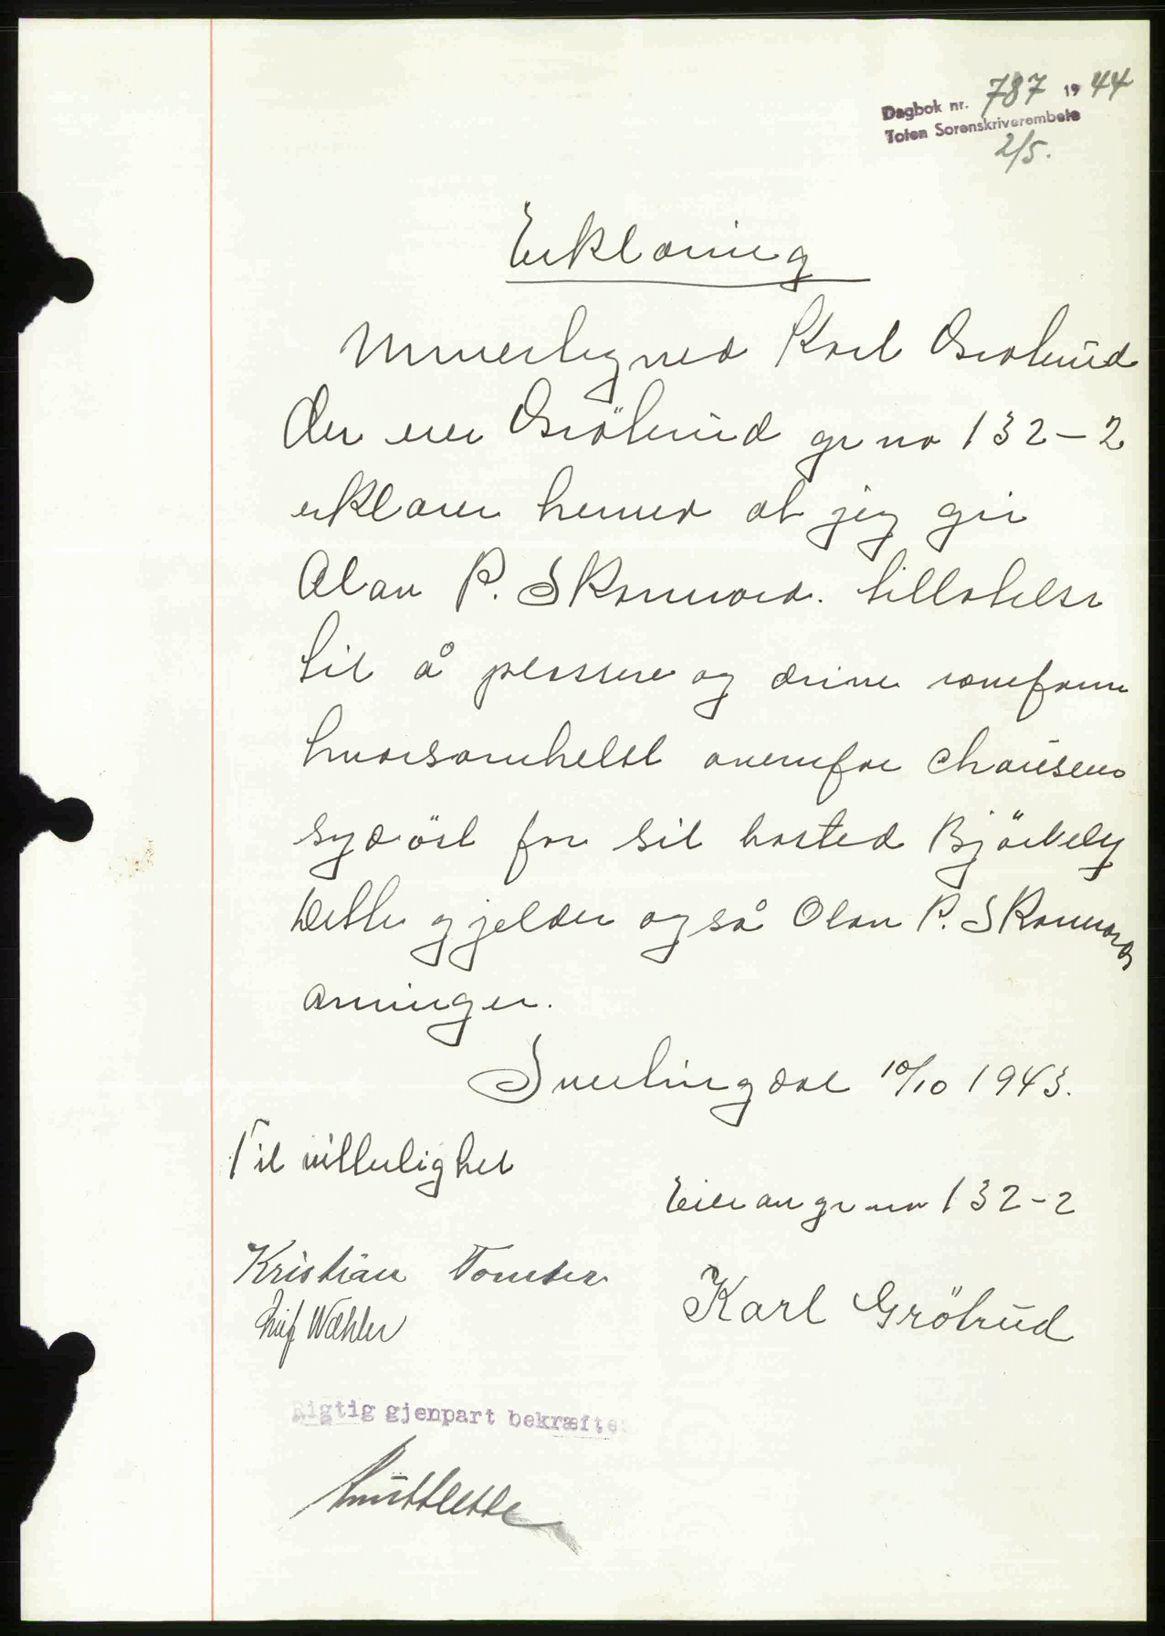 Dagbok nr. 787 1944
Toten Sorenskriverembete
2/5.
Erklæring
Unnertegned Karl Grötrud
der eier Grötrud gr no 132-2
erklærer herved at jeg gir
Olav P. Skonnord. tillatelse
til å plassere og drive revefarm
hvorsomhelst ovenfor chauseen
sydöst for sit bosted Björkely
Dette gjelder også Olav P. Skonnord
arvinger.
Snertingdal 10/10 1943.
Til vitterlighet
Eier av gr no 132-2
Kristian Tomter
Leif Wæhler
Karl Grötrud
Rigtig gjenpart bekræftes